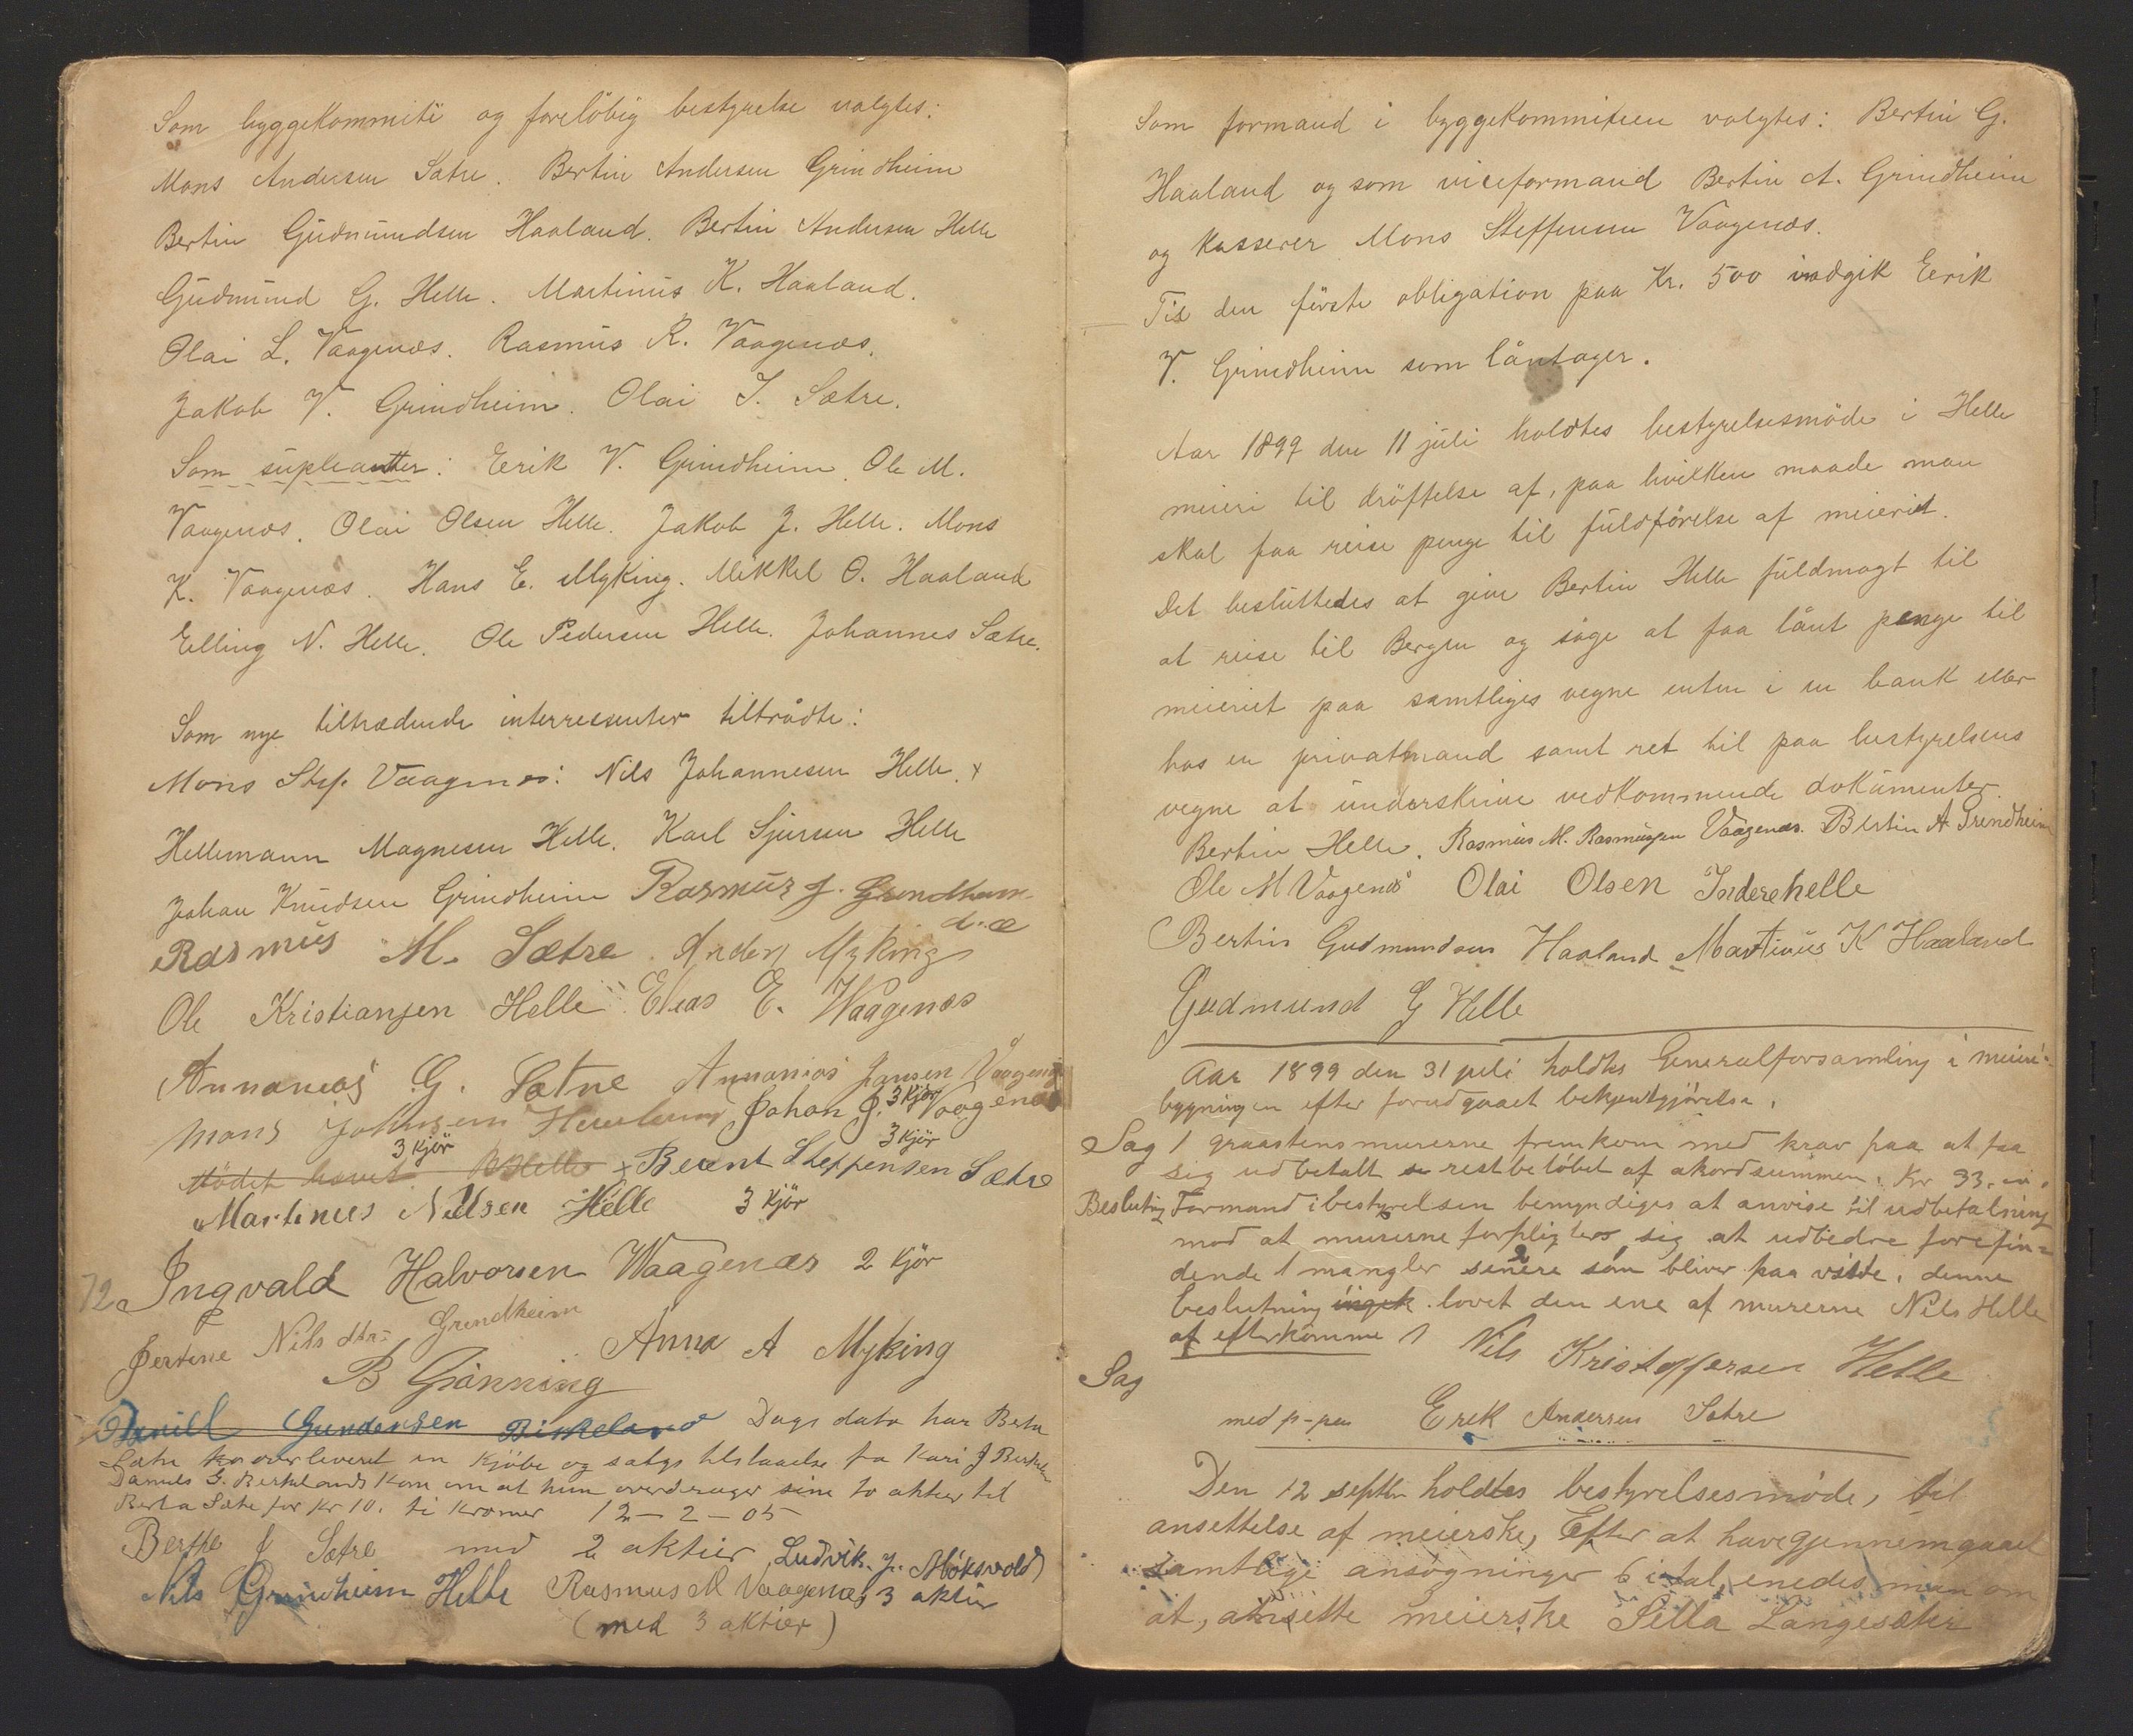 Som byggekommite og foreløbig bestyrelse valgtes:
Mons Andersen Sætre. Bertin Andersen Grindheim
Bertin Gudmundsen Haaland. Bertin Andersen Helle
Gudmund G. Helle. Martinus K. Haaland.
Olai L. Vaagenæs. Rasmus R. Vaagenæs.
Jakob V. Grindheim. Olai J. Sætre.
Som supleanter: Eerik V. Grindheim. Ole M.
Vaagenæs. Olai Olsen Helle. Jakob J. Helle. Mons
K. Vaagenæs. Hans E. Myking. Mikkel O. Haaland
Elling N. Helle. Ole Pedersen Helle. Johannes Sætre.
Som nye tiltrædende interressenter tiltrådte:
Mons Stef. Vaagenæs: Nils Johannesen Helle. x
Hellemann Magnesen Helle. Karl Sjursen Helle
Johan Knudsen Grindheim Rasmus J. Grindheim
d.æ
Rasmus M. Sætre. Anders Myking
Ole Kristiansen Helle. Elias E. Waagenæs
Annanias G. Sætre Annanias Jansen Vaagenes
Mons Johnsen Johan J. Vaagenæs
3 kjør
3 kjør
Mødet hævet B Helle x Berent Steffensen Sætre
3 kjør
Martinus Nilsen Helle 3 kjør
12 Ingvald Halvorsen Waagenæs 2 kjør
Jertine Nils dtr. Grindheim
Anna A Myking
B Grønning
Daniel Gundersen Birkeland Dags dato har Berta
Sætre overleveret en kjøbe og salgs tilstaaelse fra Kari J Birkeland
Daniels G. Birkelands Kone om at hun overdrager sine to aktier til
Berta Sætre for kr 10. ti kroner 12-2-05
Berthe J Sætre med 2 aktier Ludvik. J. Møksvold
Nils Grindheim Helle Rasmus M Vaagenæs 3 aktier
(med 3 aktier)
Som formand i byggekommiteen valgtes: Bertin G.
Haaland og som viceformand Bertin A. Grindheim
og kasserer Mons Steffensen Vaagenæs.
Til den første obligation paa Kr. 500 indgik Eerik
V. Grindheim som låntager.
Aar 1899 den 11 juli holdtes bestyrelsesmøde i Helle
meieri til drøftelse af, paa hvilken maade man
skal faa reise penge til fuldførelse af meieriet.
Det besluttedes at give Bertin Helle fuldmagt til
at reise til Bergen og søge at faa lånt penge til
meieriet paa samtliges vegne enten i en bank eller
hos en privatmand samt ret til paa bestyrelsens
vegne at underskrive vedkommende dokumenter.
Bertin Helle. Rasmus M. Rasmussen Vaagenæs. Bertin A Grindheim
Ole M Vaagenæs Olai Olsen Inderehelle
Bertin Gudmundsen Haaland Martinus K Haaland
Gudmund G Helle
Aar 1899 den 31 juli holdtes Generalforsamling i meieri-
bygningen efter forudgaaet bekjentgjørelse.
Sag 1 graastensmurerne fremkom med krav paa at faa
sig udbetalt restbeløbet af akordsummen. Kr 33.
Beslutning Formand i bestyrelsen bemyndiges at anvise til udbetalning
mod at murerne forpligter sig at udbedre forefin-
dende mangler senere som bliver paa viste. denne
beslutning lovet den ene af murerne Nils Helle
at efterkomme Nils Kristoffersen Helle
Sag
med p-pen Erek Anderssen Sætre
Den 12 septbr holdtes bestyrelsesmøde, til
ansettelse af meierske, Efter at have gjennemgaaet
samtlige ansøgninger 6 ital, enedes man om
at, ansette meierske Sella Langesæter